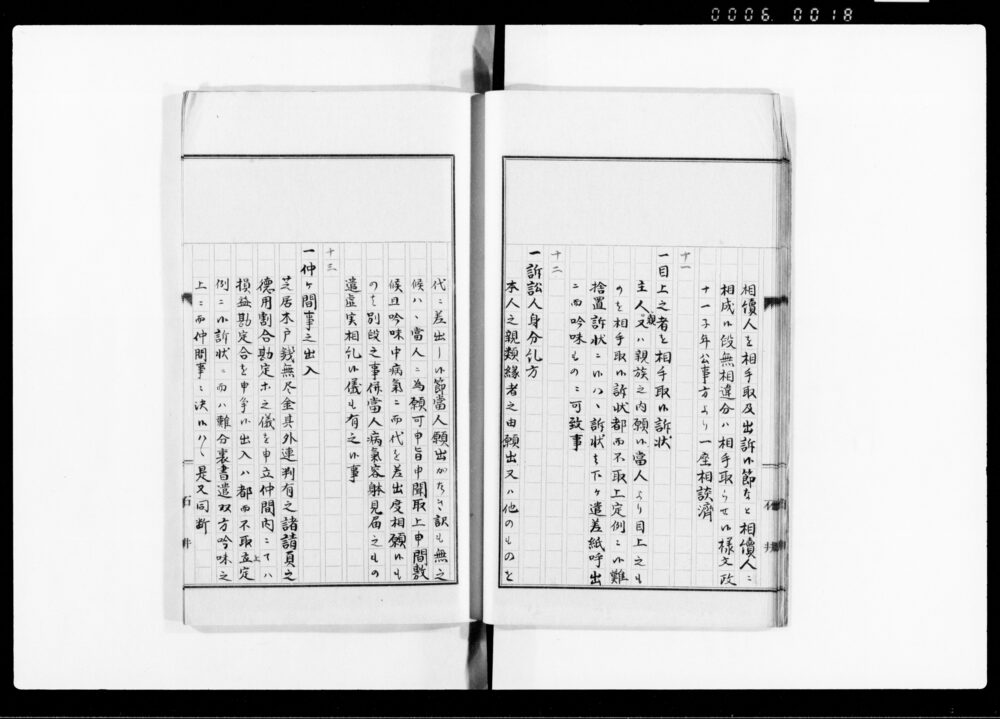 0006. 0018
相償人を相手取及出訴候節なと相償人ニ
相成候段無相違分ハ相手取らせ候様文政
十一子年公事方より一座相談済
十一
一目上之者を相手取候訴状
主人親又ハ親族之内願候當人より目上之も
のを相手取候訴状都而不取上定例ニ候難
捨置訴状ニ候ハヽ訴状を下ケ遣差紙呼出
ニ而吟味ものニ可致事
十二
一訴訟人身分糺方
本人之親類縁者之由願出又ハ他のものを
代ニ差出し候節當人願出かたき訳も無之
候ハヽ當人ニ為願可申旨申聞取上申間敷
候且吟味中病氣ニ而代を差出度相願候も
のも別段之事併當人病氣容躰見届之もの
遣虚実相糺候儀も有之候事
十三
一仲ケ間事之出入
芝居木戸銭無尽金其外連判有之諸請負之
徳用割合勘定ホ之儀を申立仲間内ニてハ
損益勘定合を申争候出入ハ都而不取上立定
例ニ候訴状ニ而ハ難分裏書遣双方吟味之
上ニ而仲間事ニ決候ハヽ是又同断
石井